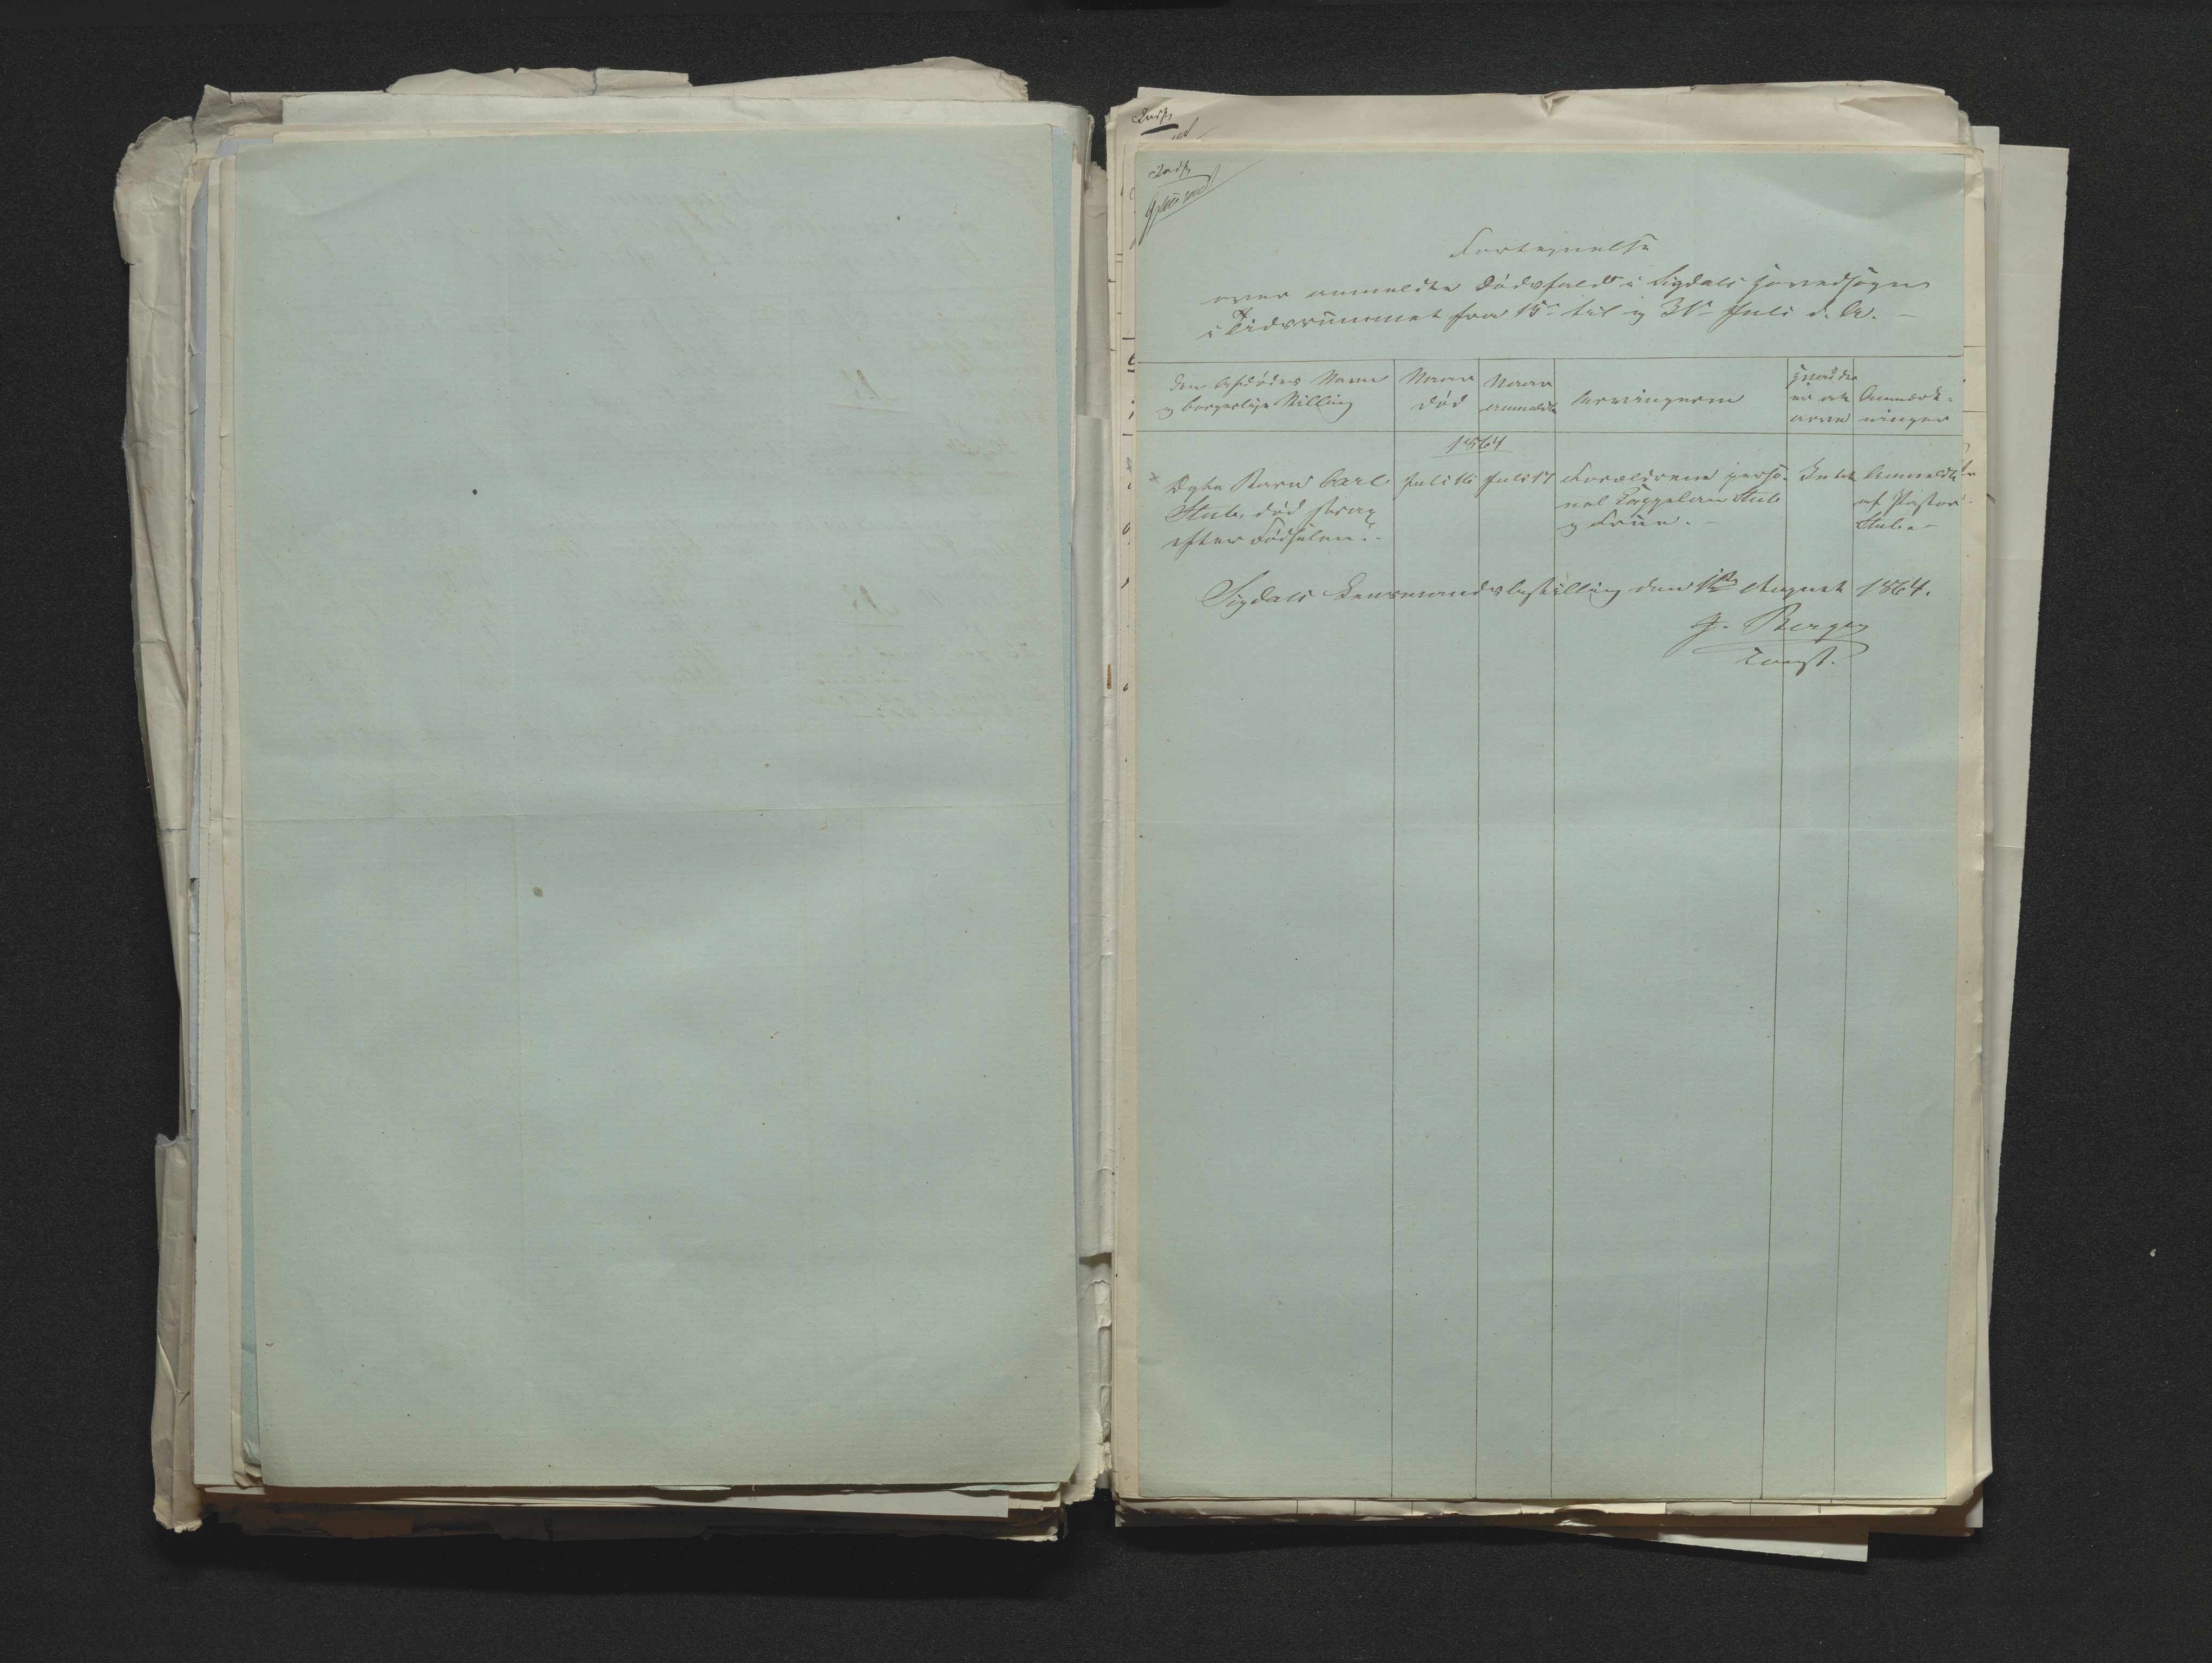 Indf.
Indf.
Fortegnelse
over anmeldte Dödsfald i Sigdals Hovedsogn
i Tidsrummet fra 15de til og 31te Juli d. A. –
Den Afdödes Navn
og borgerlige Stilling
Naar
död
Naar
anmeldt
Arvingerne
Hvad der
er at
arve
Anmærk-
ninger
1864
Ægte Barn Carl
Stub, död strax
efter Födselen. –
Juli 16
Juli 17
Forældrene perso-
nel Cappelan Stub
og Frue. –
Intet
Anmeldt
af Pastor
Stub. –
Sigdals Lensmandsbestilling den 1ste August 1864.
J. Berger
Const.